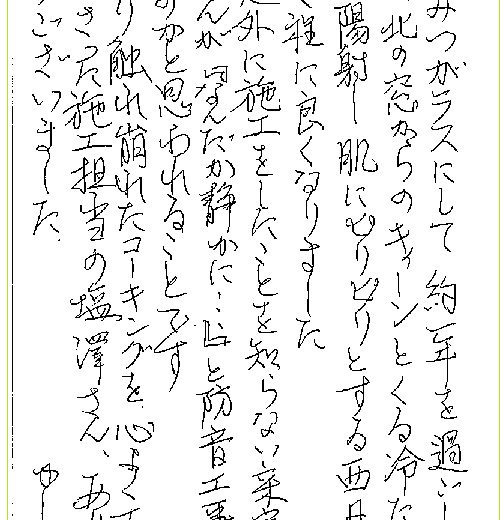 みつがラスにして 約一年を過ごし
北の窓からのキィーンとくる冷た
陽射し 肌にピリピリとする西日
程に良くなりました
外に施工をしたことを知らない来客
んが「なんだか静かに…」と防音工事
のかと思われることです
り触れ崩れたコーキングを、心よく
さった施工担当の塩澤さん、あり
ございました。